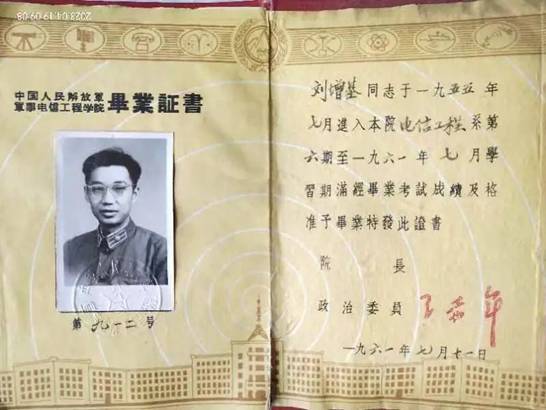 中国人民解放軍
軍事电信工程学院 畢業証書
第 九一二 号
刘增基同志于一九五五年
七月進入本院电信工程系第
六期至一九六一年七月學
習期滿經畢業考試成績及格
准予畢業特發此證書
院長
政治委員
一九六一年七月十一日